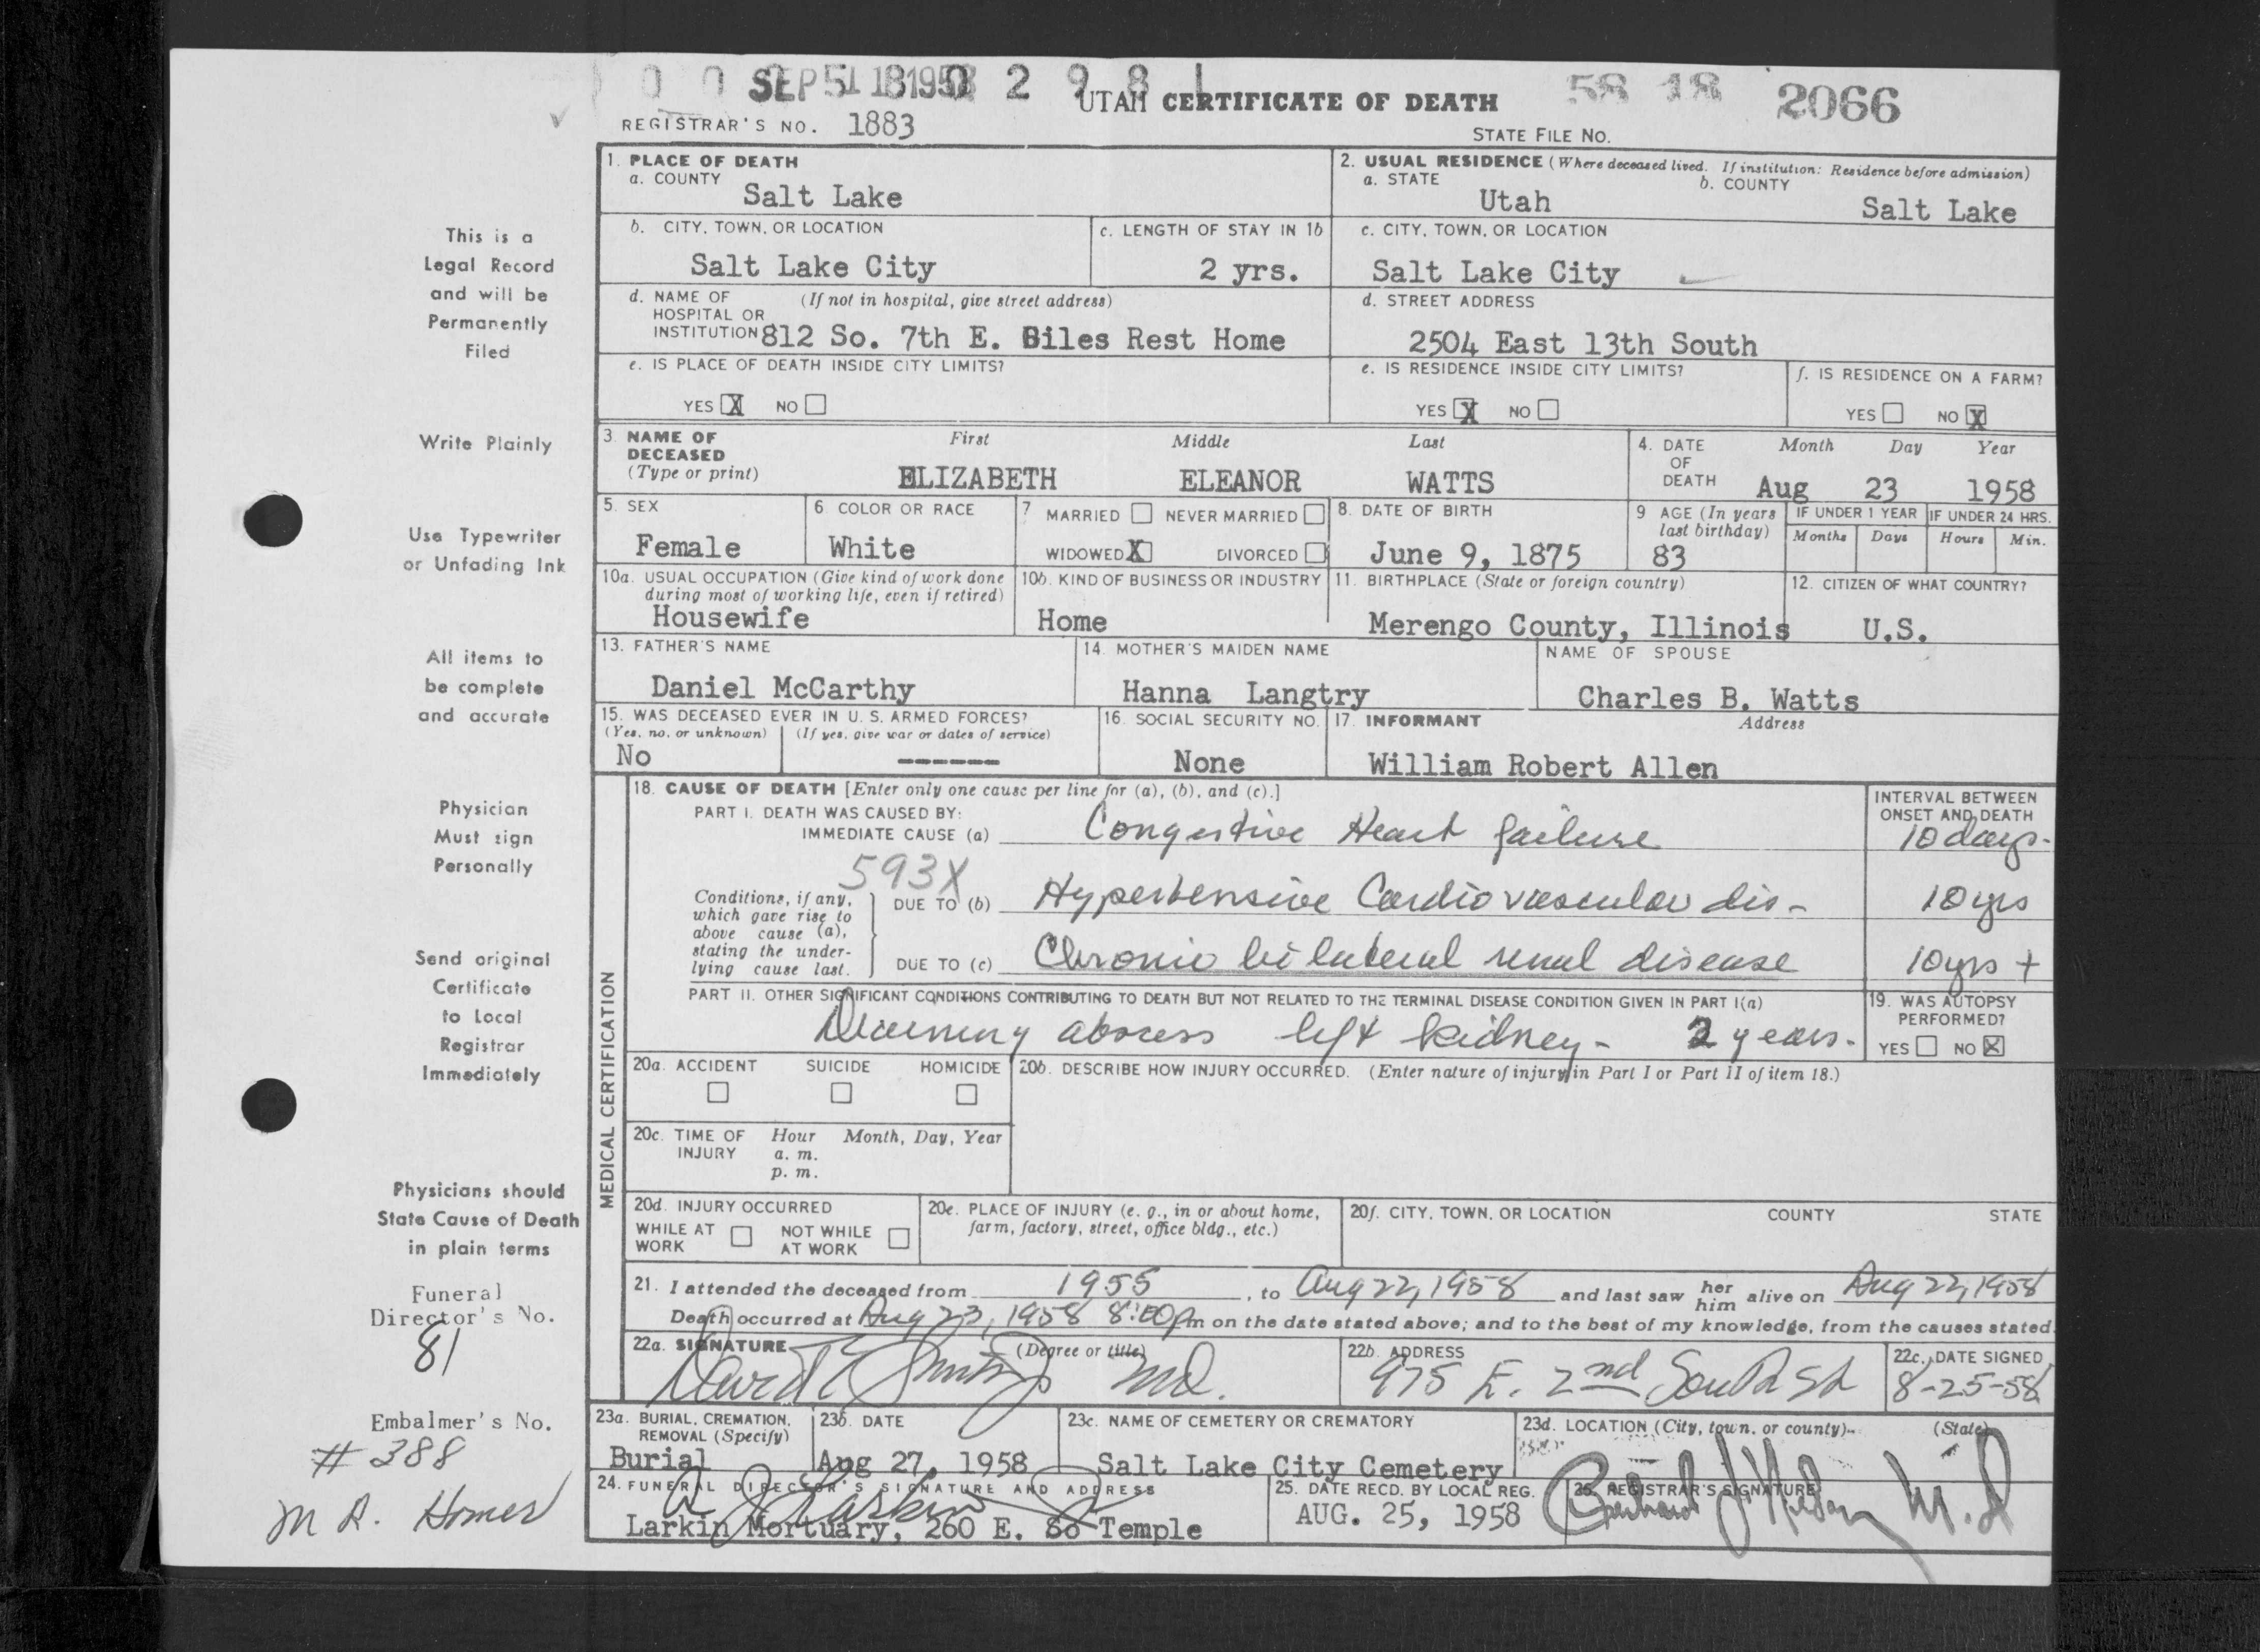 SEP 5 1958
UTAH CERTIFICATE OF DEATH
58 18 2066
REGISTRAR'S NO. 1883
STATE FILE NO.
This is a
Legal Record
and will be
Permanently
Filed
Write Plainly
Use Typewriter
or Unfading Ink
All items to
be complete
and accurate
Physician
Must sign
Personally
Send original
Certificate
to Local
Registrar
Immediately
Physicians should
State Cause of Death
in plain terms
Funeral
Director's No.
81
Embalmer's No.
# 388
1. PLACE OF DEATH
a. COUNTY
Salt Lake
2. USUAL RESIDENCE (Where deceased lived. If institution: Residence before admission)
a. STATE b. COUNTY
Utah Salt Lake
b. CITY, TOWN, OR LOCATION
Salt Lake City
c. LENGTH OF STAY IN 1b
2 yrs.
c. CITY, TOWN, OR LOCATION
Salt Lake City
d. NAME OF (If not in hospital, give street address)
HOSPITAL OR
INSTITUTION 812 So. 7th E. Giles Rest Home
d. STREET ADDRESS
2504 East 13th South
e. IS PLACE OF DEATH INSIDE CITY LIMITS?
YES X NO
e. IS RESIDENCE INSIDE CITY LIMITS?
YES X NO
f. IS RESIDENCE ON A FARM?
YES NO X
3. NAME OF First Middle Last
DECEASED
(Type or print) ELIZABETH ELEANOR WATTS
4. DATE Month Day Year
OF
DEATH Aug 23 1958
5. SEX
Female
6. COLOR OR RACE
White
7 MARRIED NEVER MARRIED
WIDOWED X DIVORCED
8. DATE OF BIRTH
June 9, 1875
9 AGE (In years
last birthday)
83
IF UNDER 1 YEAR
Months Days
IF UNDER 24 HRS.
Hours Min.
10a. USUAL OCCUPATION (Give kind of work done
during most of working life, even if retired)
Housewife
10b. KIND OF BUSINESS OR INDUSTRY
Home
11. BIRTHPLACE (State or foreign country)
Merengo County, Illinois
12. CITIZEN OF WHAT COUNTRY?
U.S.
13. FATHER'S NAME
Daniel McCarthy
14. MOTHER'S MAIDEN NAME
Hanna Langtry
NAME OF SPOUSE
Charles B. Watts
15. WAS DECEASED EVER IN U. S. ARMED FORCES?
(Yes, no, or unknown) (If yes, give war or dates of service)
No ------
16. SOCIAL SECURITY NO.
None
17. INFORMANT Address
William Robert Allen
MEDICAL CERTIFICATION
18. CAUSE OF DEATH [Enter only one cause per line for (a), (b), and (c).]
PART I. DEATH WAS CAUSED BY:
IMMEDIATE CAUSE (a) Congestive Heart failure
INTERVAL BETWEEN
ONSET AND DEATH
10 days-
593X
Conditions, if any,
which gave rise to
above cause (a),
stating the under-
lying cause last.
DUE TO (b) Hypertensive Cardiovascular dis- 10 yrs
DUE TO (c) Chronic bilateral renal disease 10 yrs +
PART II. OTHER SIGNIFICANT CONDITIONS CONTRIBUTING TO DEATH BUT NOT RELATED TO THE TERMINAL DISEASE CONDITION GIVEN IN PART I(a)
abscess left kidney- 2 years.
19. WAS AUTOPSY
PERFORMED?
YES NO X
20a. ACCIDENT SUICIDE HOMICIDE
20b. DESCRIBE HOW INJURY OCCURRED. (Enter nature of injury in Part I or Part II of item 18.)
20c. TIME OF Hour Month, Day, Year
INJURY a. m.
p. m.
20d. INJURY OCCURRED
WHILE AT WORK NOT WHILE AT WORK
20e. PLACE OF INJURY (e. g., in or about home,
farm, factory, street, office bldg., etc.)
20f. CITY, TOWN, OR LOCATION COUNTY STATE
21. I attended the deceased from 1955, to Aug 22, 1958 and last saw her him alive on Aug 22, 1958
Death occurred at Aug 23, 1958 8:00 pm on the date stated above; and to the best of my knowledge, from the causes stated.
22a. SIGNATURE (Degree or title)
David E Smith Jr MD.
22b. ADDRESS
975 E. 2nd South St
22c. DATE SIGNED
8-25-58
23a. BURIAL, CREMATION,
REMOVAL (Specify)
Burial
23b. DATE
Aug 27, 1958
23c. NAME OF CEMETERY OR CREMATORY
Salt Lake City Cemetery
23d. LOCATION (City, town, or county) (State)
24. FUNERAL DIRECTOR'S SIGNATURE AND ADDRESS
Larkin Mortuary, 260 E. So Temple
25. DATE RECD. BY LOCAL REG.
AUG. 25, 1958
26. REGISTRAR'S SIGNATURE
M.D
M R. Homer